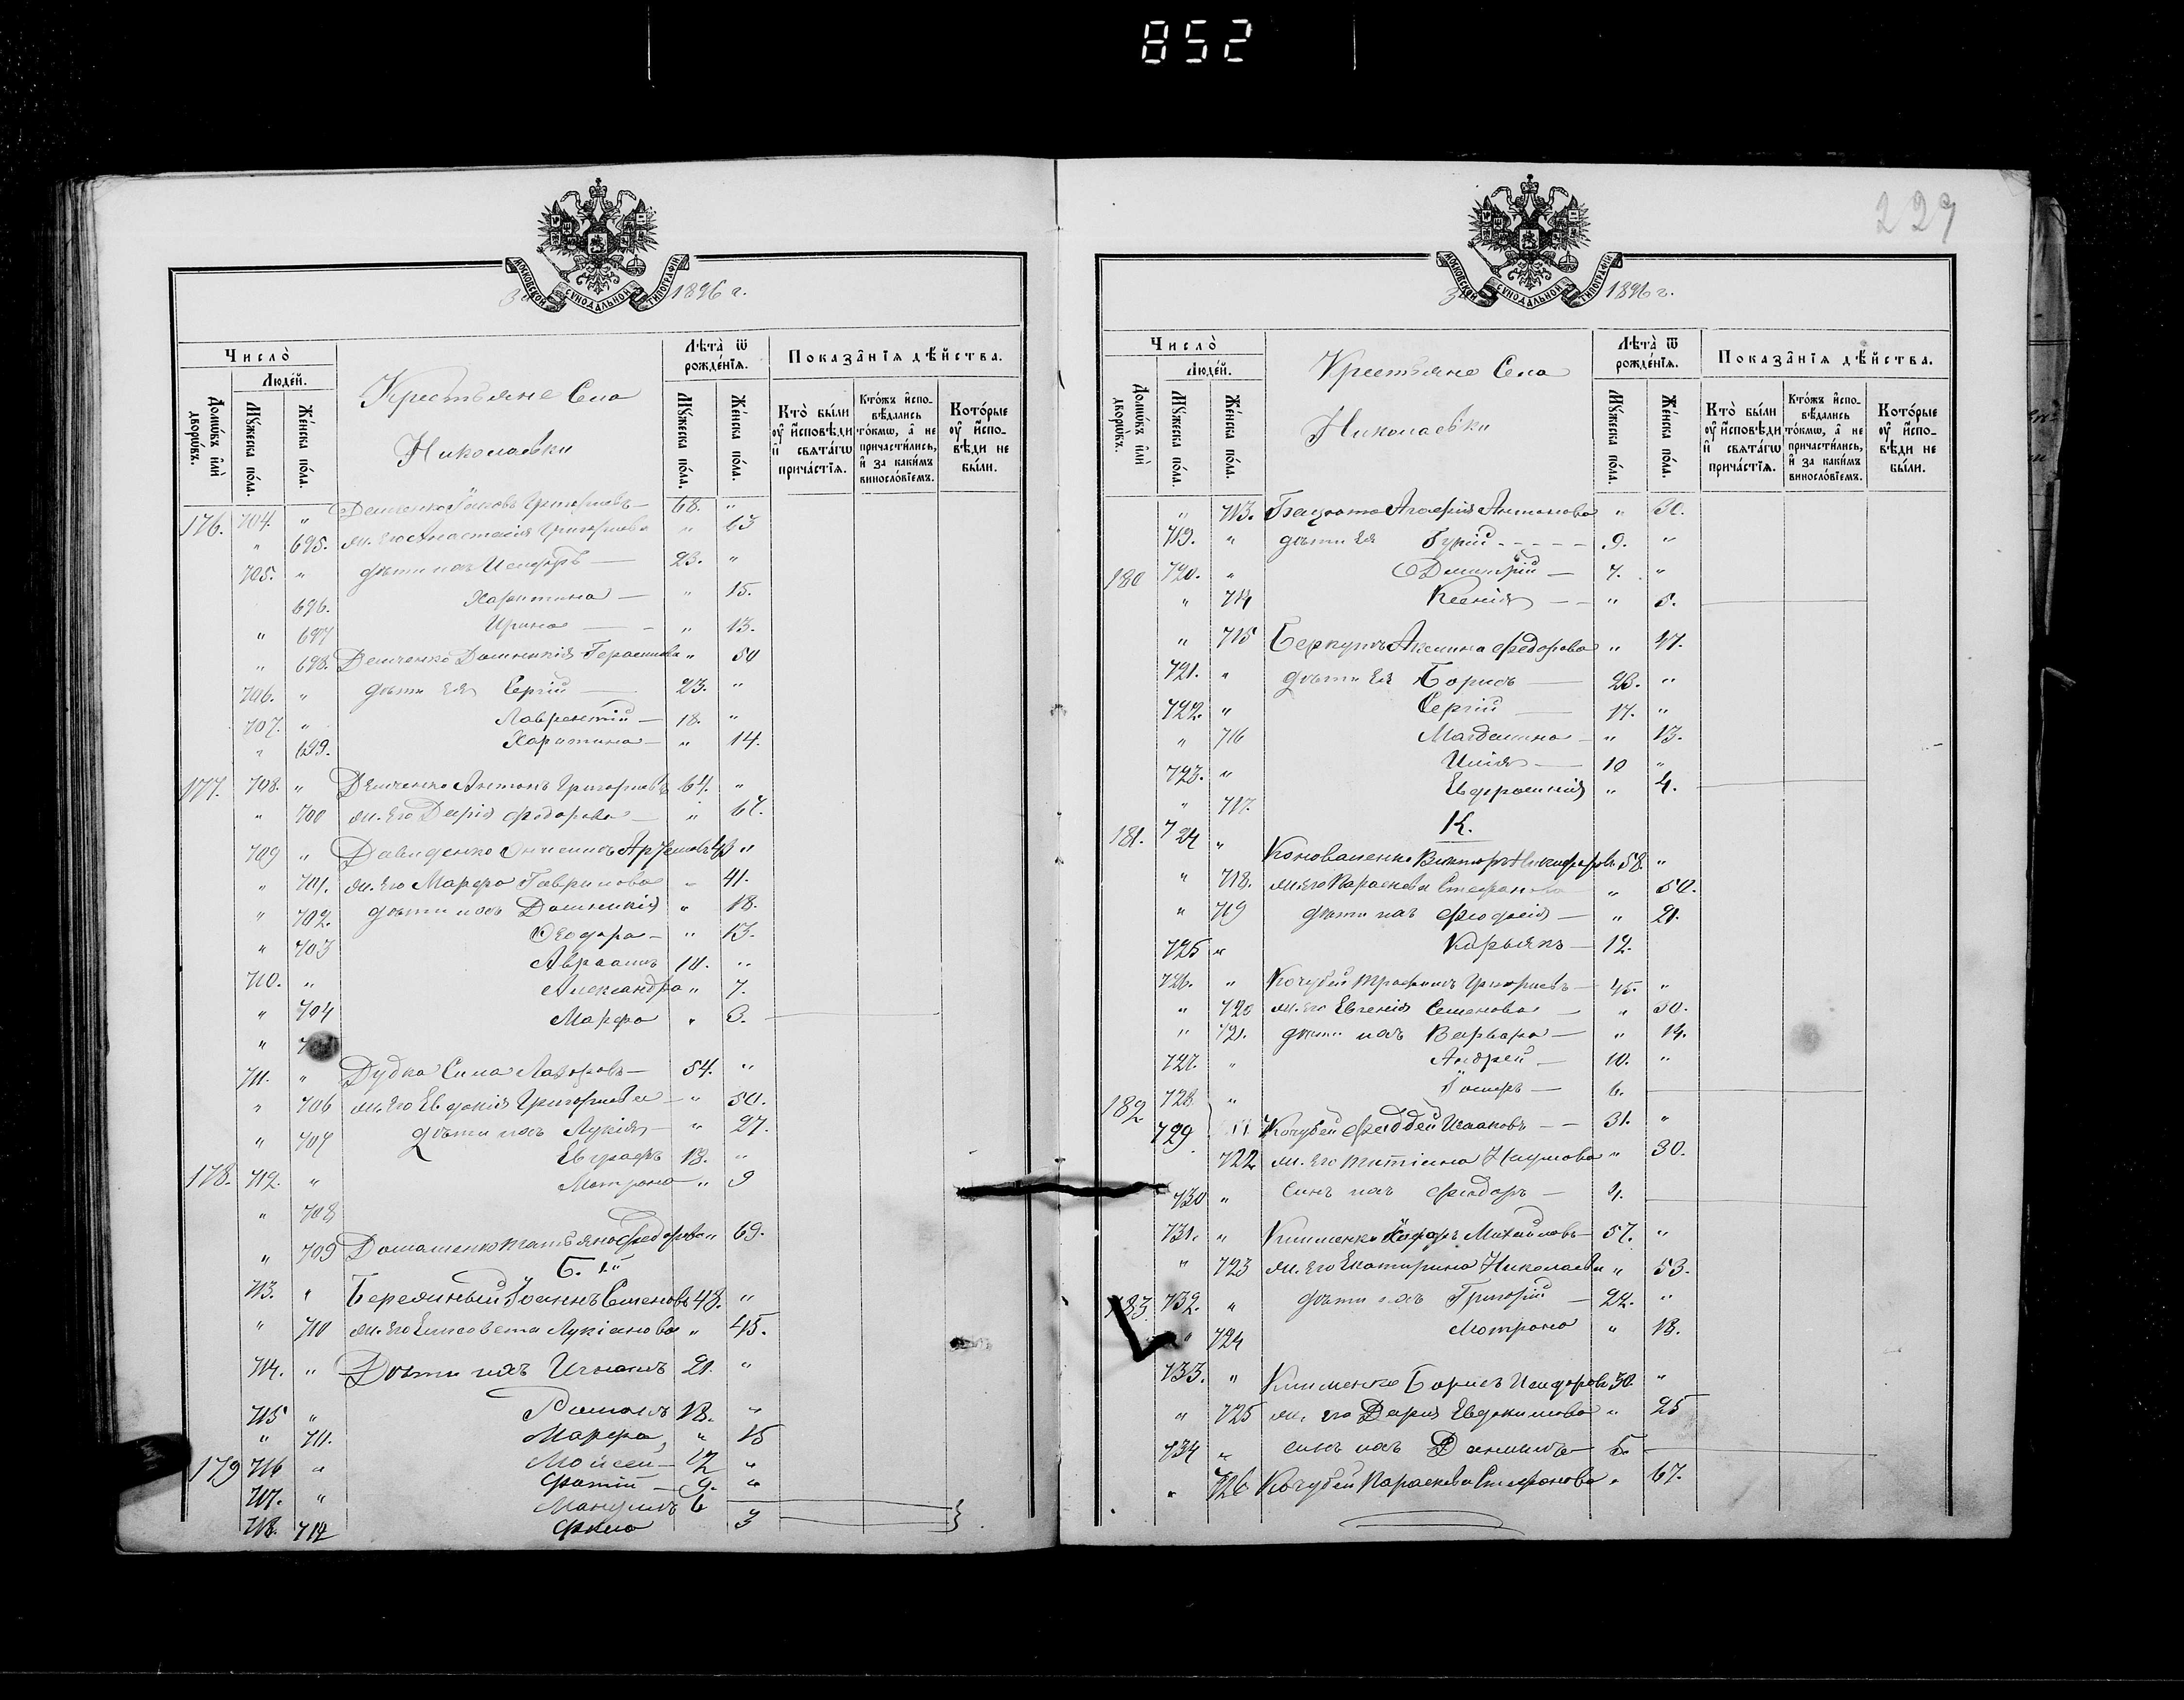 852
229
МОСКОВСКОЙ СУНОДАЛЬНОЙ ТИПОГРАФІИ
За 1896 г.
Число̀
Людей.
Домѡвъ и҆лѝ дворѡвъ.
Мꙋжеска пола.
Женска пола.
Крестьяне Села
Николаевки
Лѣта̀ ѿ рожденїѧ.
Мꙋжеска пола.
Женска пола.
Показанїѧ дѣйства.
Кто̀ были оу҆ и҆сповѣди и҆ свѧтагѡ причастїѧ.
Ктожъ и҆сповѣдались токмѡ, а҆ не причастились, и҆ за какимъ винословїемъ.
Которые оу҆ и҆сповѣди не были.
176. 704. " Демченко Іаковъ Григорьевъ — 68. "
" 695. ж. его Анастасія Григорьева " 63
705. " дѣти ихъ Исидоръ — 23. "
696. Харитина — " 15.
" 697 Ирина — " 13.
" 698. Демченко Домникія Герасимова " 50
706. " дѣти ея Сергій — 23. "
707. " Лаврентій — 18. "
" 699. Харитина — " 14.
177. 708. " Демченко Антонъ Григорьевъ 64. "
" 700 ж. его Дарія Федорова — " 67.
709 " Давиденко Онисимъ Артемовъ 43 "
" 701. ж. его Марфа Гаврилова " 41.
" 702. дѣти ихъ Домникія " 18.
" 703 Феодора — " 13.
710. " Авраамъ 10. "
" 704 Александра " 7.
" 7 Марфа " 3.
711. " Дудка Сила Лазоровъ — 54. "
" 706 ж. его Евдокія Григорьева — " 50.
" 707 дѣти ихъ Лукія — " 27.
178. 712. " Евграфъ 13. "
" 708 Мотрона " 9
" 709 Домашенко Татьяна Федорова " 69.
Б.
713. " Бережный Іоаннъ Семеновъ 48. "
" 710 ж. его Елисавета Лукіанова " 45.
714. " Дѣти ихъ Игнатъ 21. "
715 " Романъ 18. "
" 711. Марфа " 15
179 716 " Мойсей — 12 "
717. " Фотій — 9. "
718. 712 Мануилъ 6
Фекла 3
МОСКОВСКОЙ СУНОДАЛЬНОЙ ТИПОГРАФІИ
За 1896 г.
Число̀
Людей.
Домѡвъ и҆лѝ дворѡвъ.
Мꙋжеска пола.
Женска пола.
Крестьяне Села
Николаевки
Лѣта̀ ѿ рожденїѧ.
Мꙋжеска пола.
Женска пола.
Показанїѧ дѣйства.
Кто̀ были оу҆ и҆сповѣди и҆ свѧтагѡ причастїѧ.
Ктожъ и҆сповѣдались токмѡ, а҆ не причастились, и҆ за какимъ винословїемъ.
Которые оу҆ и҆сповѣди не были.
" 713. Агафія Антонова " 30.
719. " дѣти ея Гурій - - - - - 9. "
180 720. " Димитрій — 7. "
" 714 Ксенія — " 5.
" 715 Беркутъ Акилина Федорова " 47.
721. " дѣти ея Борисъ — 23. "
722. " Сергій — 17. "
" 716 Магдалина — " 13.
723. " Илія — 10 "
" 717. Евфросинія " 4.
К.
181. 724 " Коноваленко Викторъ Никифоровъ 58. "
" 718. ж. его Параскева Стефанова " 50.
" 719 дѣти ихъ Феодосія — " 21.
725 " Карьякъ — 12.
726. " Кочубей Трофимъ Григорьевъ — 45. "
" 720 ж. его Евгенія Семенова — " 30.
" 721. дѣти ихъ Варвара — " 14.
727. " Андрей — 10. "
728 " Іосифъ — 6.
182 729 Кочубей Фаддей Исааковъ — 31. "
722 ж. его Татіана Наумова " 30.
730 " Синъ ихъ Феодоръ — 4.
731. " Клименко Михайловъ 57. "
" 723 ж. его Екатирина Николаева " 53.
183. 732. " дѣти ихъ Григорій — 22. "
" 724 Мотрона " 18.
733. " Клименко Борисъ Исидоровъ 30. "
" 725 ж. его Дарія Евдокимова " 25
734 " синъ ихъ Даніилъ — 5.
" 726 Кочубей Параскева Стефанова " 67.